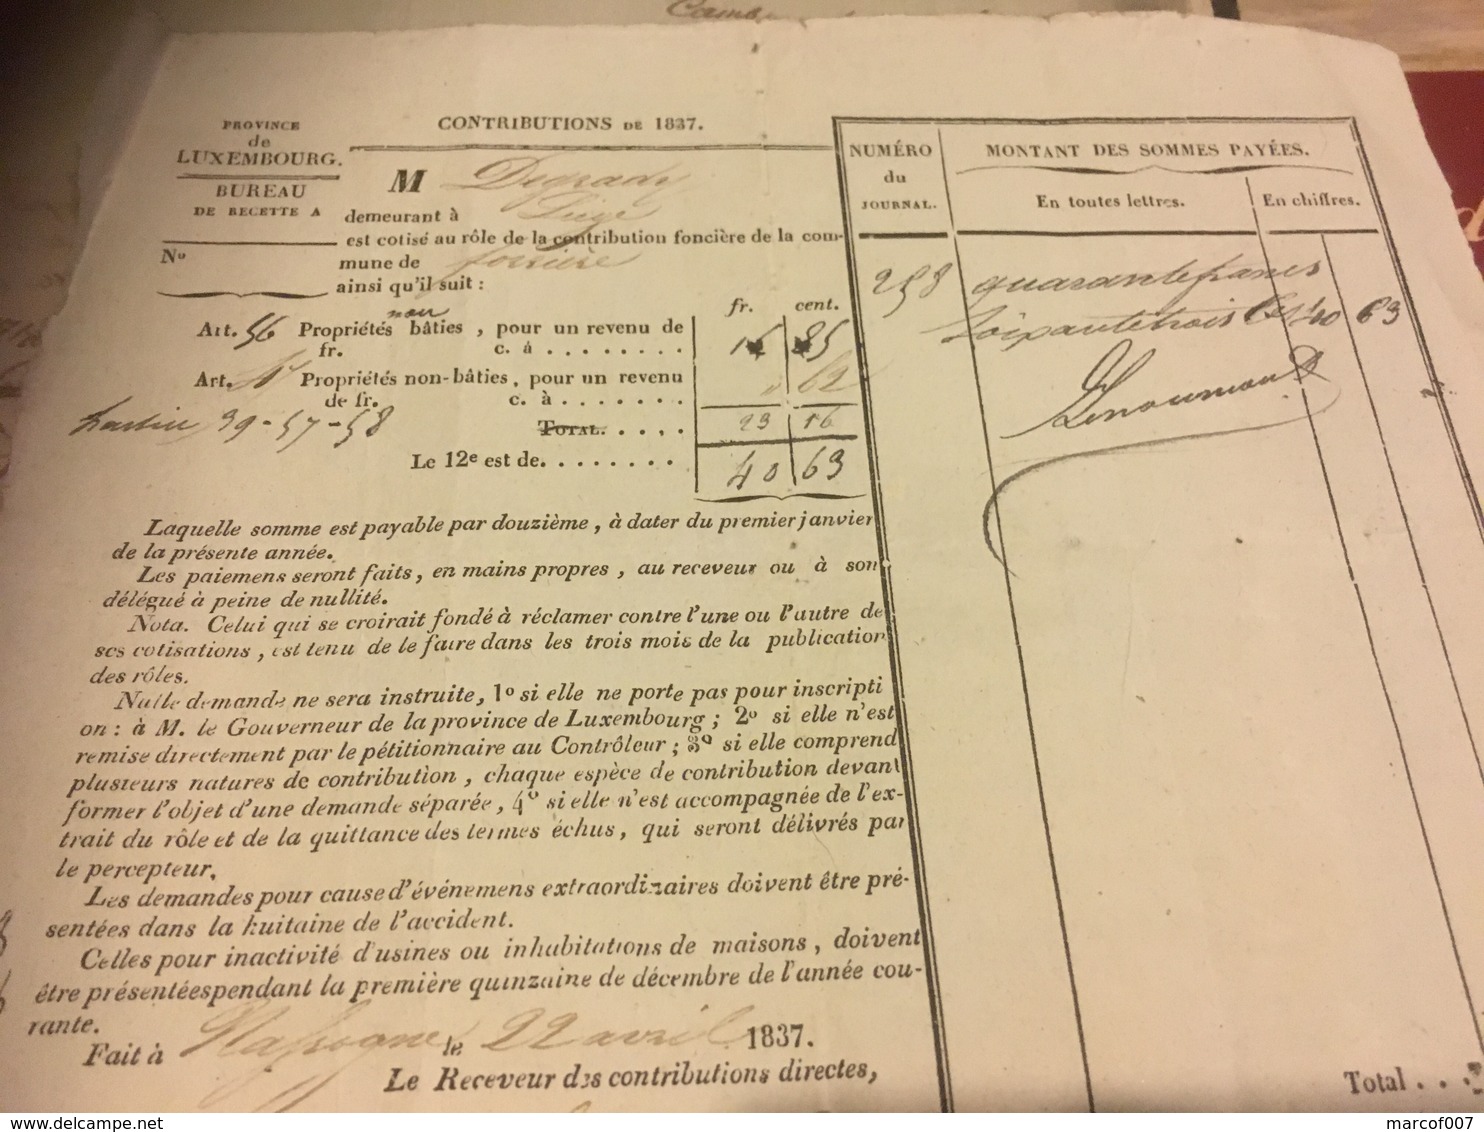 PROVINCE
de
LUXEMBOURG.
BUREAU
DE RECETTE A
Nº
CONTRIBUTIONS DE 1837.
M Degrady
demeurant à Liége
est cotisé au rôle de la contribution foncière de la com-
mune de forrière
ainsi qu'il suit :
fr. cent.
Art. 56 Propriétés non bâties , pour un revenu de
fr. c. à . . . . . . . .
Art. Propriétés non-bâties , pour un revenu
de fr. c. à . . . . . . .
39-57-58 TOTAL. . . . . 23 16
Le 12e est de. . . . . . . . 40 63
Laquelle somme est payable par douzième , à dater du premier janvier
de la présente année.
Les paiemens seront faits , en mains propres , au receveur ou à son
délégué à peine de nullité.
Nota. Celui qui se croirait fondé à réclamer contre l'une ou l'autre de
ses cotisations , est tenu de le faire dans les trois mois de la publication
des rôles.
Nulle demande ne sera instruite , 1º si elle ne porte pas pour inscripti
on : à M. le Gouverneur de la province de Luxembourg ; 2º si elle n'est
remise directement par le pétitionnaire au Contrôleur ; 3º si elle comprend
plusieurs natures de contribution , chaque espèce de contribution devant
former l'objet d'une demande séparée , 4º si elle n'est accompagnée de l'ex-
trait du rôle et de la quittance des termes échus , qui seront délivrés par
le percepteur,
Les demandes pour cause d'événemens extraordinaires doivent être pré-
sentées dans la huitaine de l'accident.
Celles pour inactivité d'usines ou inhabitations de maisons , doivent
être présentéespendant la première quinzaine de décembre de l'année cou-
rante.
Fait à le 22 avril 1837.
Le Receveur des contributions directes,
NUMÉRO
du
JOURNAL.
MONTANT DES SOMMES PAYÉES.
En toutes lettres. En chiffres.
258 quarante francs
soixante trois Ces 40 63
Total . . .
delcampe.net
marcof007